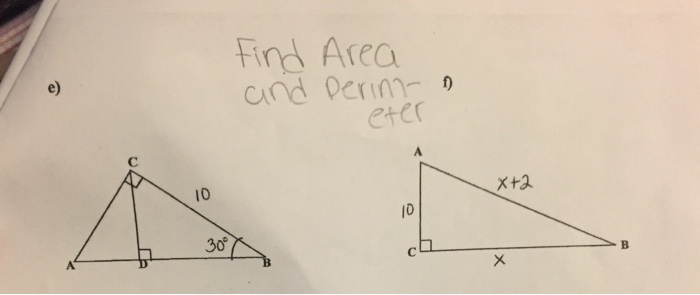 Find Area
and Perim-
eter
e)
f)
C
10
30°
A
D
B
A
x+2
10
C
x
B